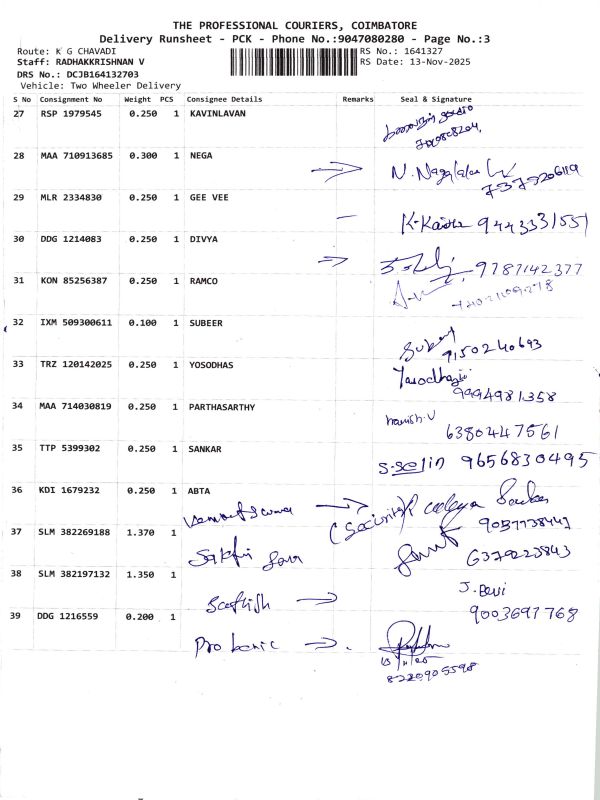 THE PROFESSIONAL COURIERS, COIMBATORE
Delivery Runsheet - PCK - Phone No.:9047080280 - Page No.:3
Route: K G CHAVADI
RS No.: 1641327
Staff: RADHAKKRISHNAN V
RS Date: 13-Nov-2025
DRS No.: DCJB164132703
Vehicle: Two Wheeler Delivery
S No Consignment No Weight PCS Consignee Details Remarks Seal & Signature
27 RSP 1979545 0.250 1 KAVINLAVAN
28 MAA 710913685 0.300 1 NEGA
29 MLR 2334830 0.250 1 GEE VEE
9443331551
30 DDG 1214083 0.250 1 DIVYA
9787142377
31 KON 85256387 0.250 1 RAMCO
32 IXM 509300611 0.100 1 SUBEER
9150240693
33 TRZ 120142025 0.250 1 YOSODHAS
9994981358
34 MAA 714030819 0.250 1 PARTHASARTHY
6380447561
35 TTP 5399302 0.250 1 SANKAR
S.Selin 9656830495
36 KDI 1679232 0.250 1 ABTA
(Security)
37 SLM 382269188 1.370 1
38 SLM 382197132 1.350 1
J. Devi
9003697768
39 DDG 1216559 0.200 1
13/11/25